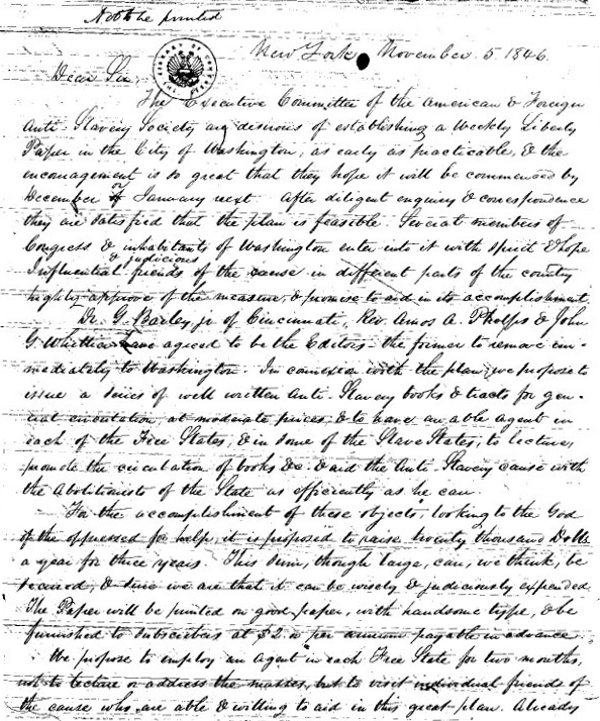 Not to be printed
New York, November 5. 1846.
LIBRARY OF CONGRESS
Dear Sir,
The Executive Committee of the American & Foreign
Anti-Slavery Society are desirous of establishing a Weekly Liberty
Paper in the City of Washington, as early as practicable, & the
encouragement is so great that they hope it will be commenced by
December or January next. After diligent enquiry & correspondence
they are satisfied that the plan is feasible. Several members of
Congress & inhabitants of Washington enter into it with spirit & hope
Influential & judicious friends of the cause in different parts of the country
highly approve of the measure, & promise to aid in its accomplishment.
Dr. G. Bailey, jr. of Cincinnati, Rev. Amos A. Phelps & John
G. Whittier have agreed to be the Editors - the former to remove im-
mediately to Washington. In connexion with the plan, we propose to
issue a series of well written Anti-Slavery books & tracts for gen-
eral circulation, at moderate prices, & to have an able agent in
each of the Free States, & in some of the Slave States, to lecture,
promote the circulation of books &c. & aid the Anti Slavery cause with
the Abolitionists of the State as efficiently as he can.
For the accomplishment of these objects, looking to the God
of the oppressed for help, it is proposed to raise twenty thousand Dolls
a year for three years. This sum, though large, can, we think, be
secured, & sure we are that it can be wisely & judiciously expended.
The Paper will be printed on good paper, with handsome type, & be
furnished to subscribers at $2. per annum payable in advance.
We propose to employ an Agent in each Free State for two months,
not to lecture or address the masses, but to visit individual friends of
the cause who are able & willing to aid in this great plan. Already